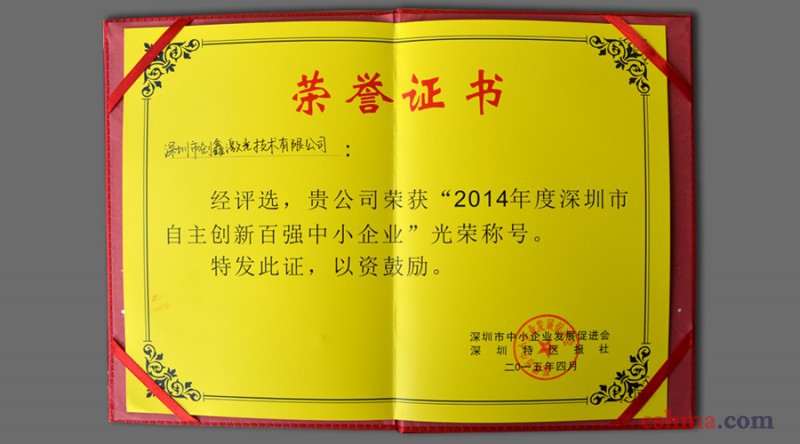 荣誉证书
深圳市创鑫激光技术有限公司：
经评选，贵公司荣获“2014年度深圳市
自主创新百强中小企业”光荣称号。
特发此证，以资鼓励。
深圳市中小企业发展促进会
深圳特区报社
二〇一五年四月